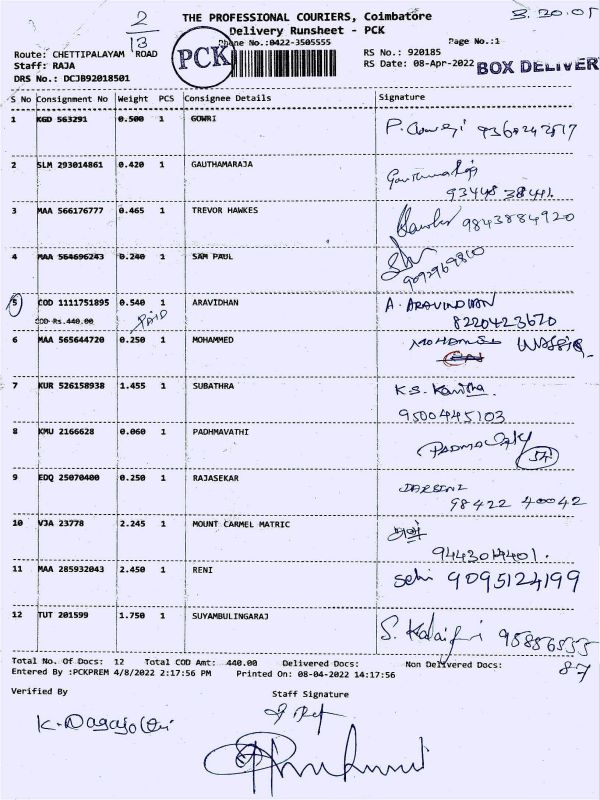 2
13
THE PROFESSIONAL COURIERS, Coimbatore
Delivery Runsheet - PCK
Phone No.:0422-3505555
Page No.:1
Route: CHETTIPALAYAM ROAD
PCK
RS No.: 920185
Staff: RAJA
RS Date: 08-Apr-2022
BOX DELIVER
DRS No.: DCJB92018501
S No Consignment No Weight PCS Consignee Details Signature
1 KGD 563291 0.500 1 GOWRI
2 SLM 293014861 0.420 1 GAUTHAMARAJA
3 MAA 566176777 0.465 1 TREVOR HAWKES 9843884920
4 MAA 564696243 0.240 1 SAM PAUL
5 COD 1111751895 0.540 1 ARAVIDHAN A. ARAVINDHAN
COD Rs.440.00 PAID 8220423670
6 MAA 565644720 0.250 1 MOHAMMED
7 KUR 526158938 1.455 1 SUBATHRA K.S. Kavitha
9500445103
8 KMU 2166628 0.060 1 PADHMAVATHI
9 EDQ 25070400 0.250 1 RAJASEKAR
98422 40042
10 VJA 23778 2.245 1 MOUNT CARMEL MATRIC
9443014401.
11 MAA 285932043 2.450 1 RENI 9095124199
12 TUT 201599 1.750 1 SUYAMBULINGARAJ
87
Total No. Of Docs: 12 Total COD Amt: 440.00 Delivered Docs: Non Delivered Docs:
Entered By :PCKPREM 4/8/2022 2:17:56 PM Printed On: 08-04-2022 14:17:56
Verified By Staff Signature